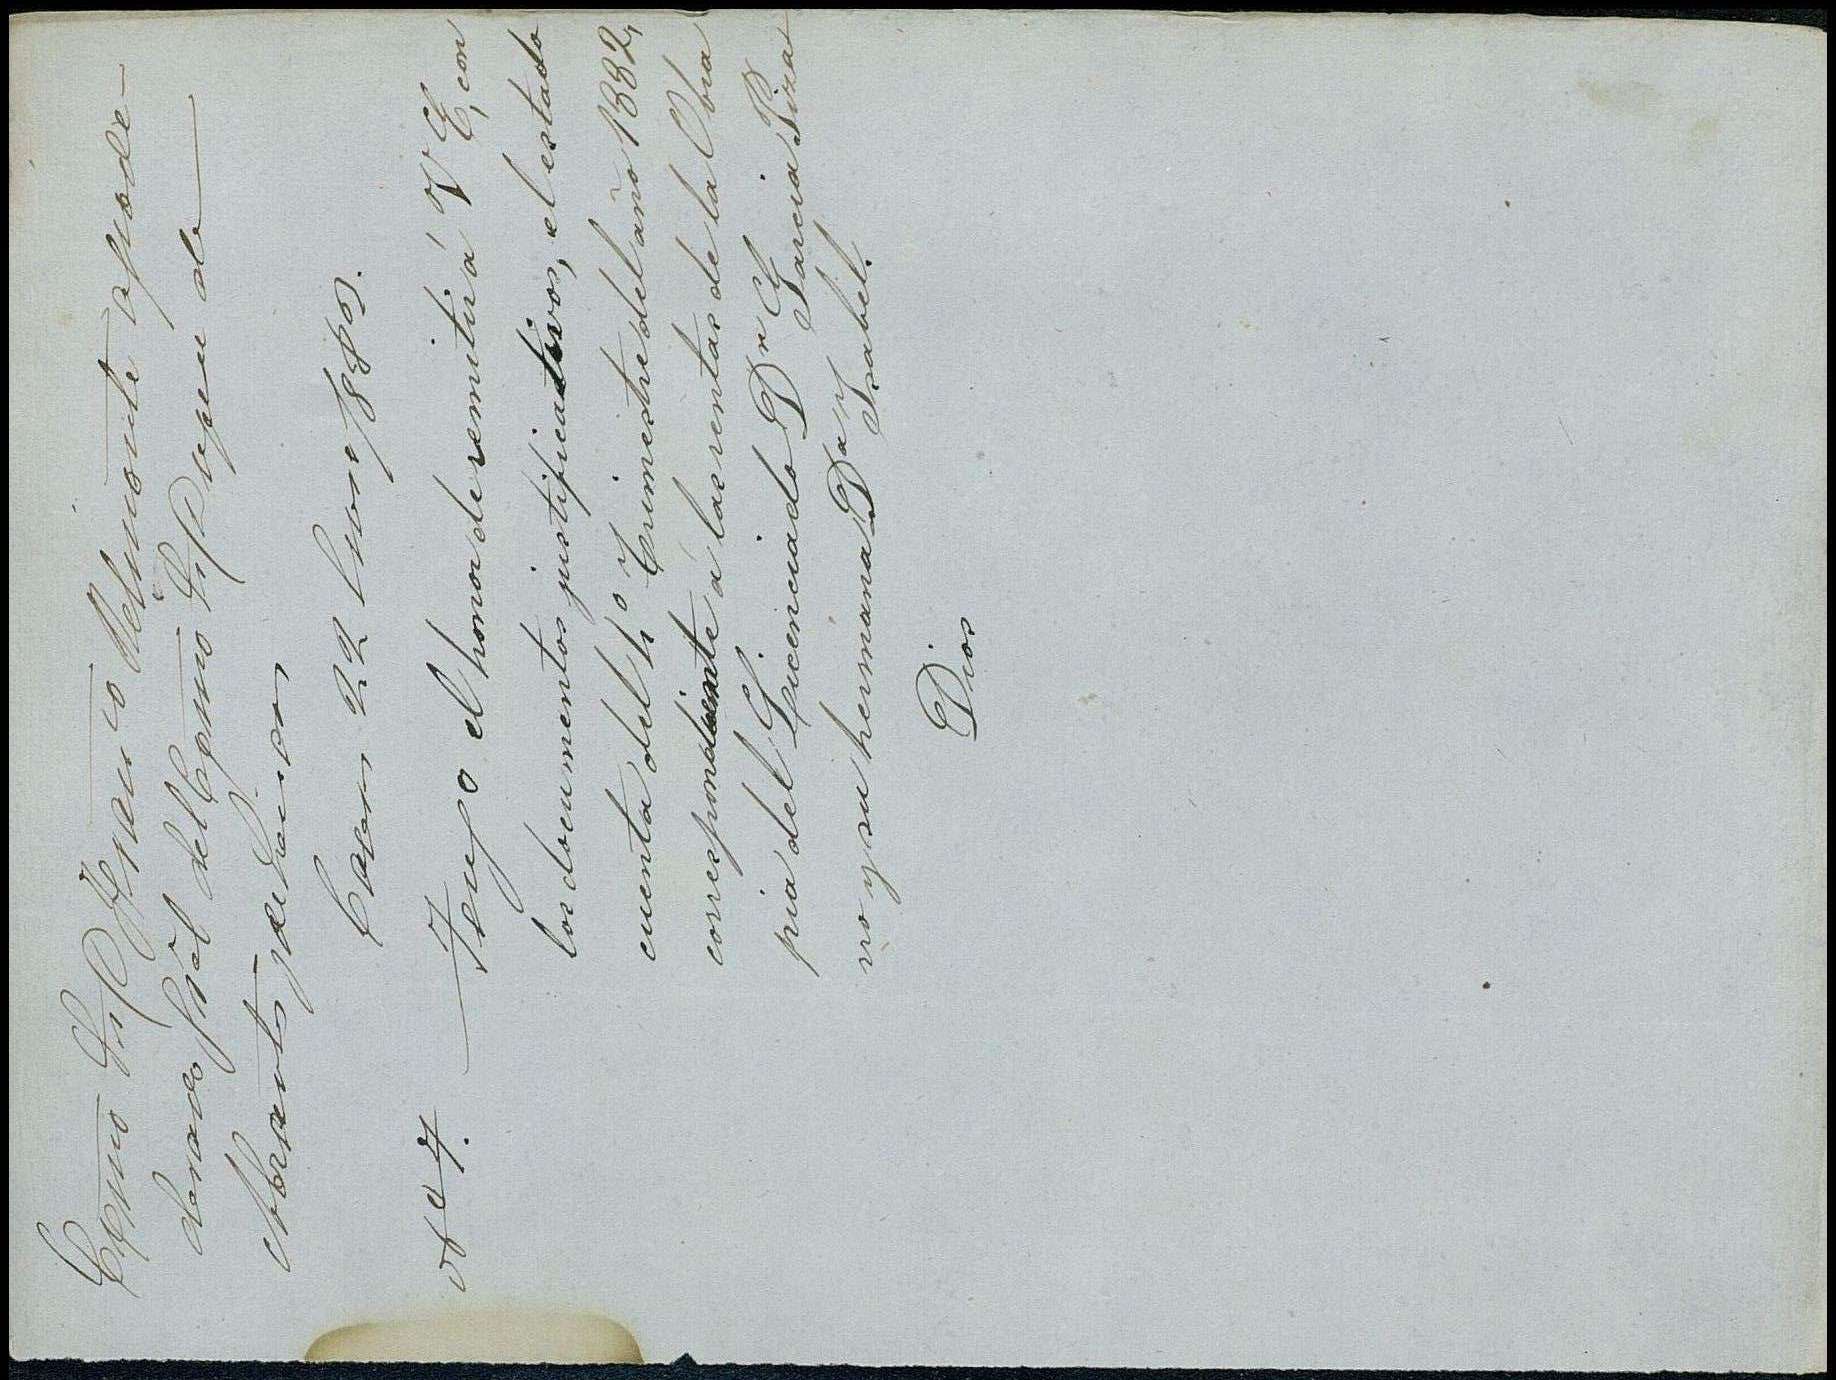 Exmo Sr D Franco Belmonte apode-
derado gral del Exmo Sr Duque de
Abrantes
Enero 22 1883.
Nº 4.
Tengo el honor de remitir á V E, con
los documentos justificativos, el estado
cuenta del 4º Trimestre del año 1882,
correspondiente á las rentas de la Obra
pia del Licenciado Dn E. Garcia Piza
rro y su hermana Dª Ysabel.
Dios